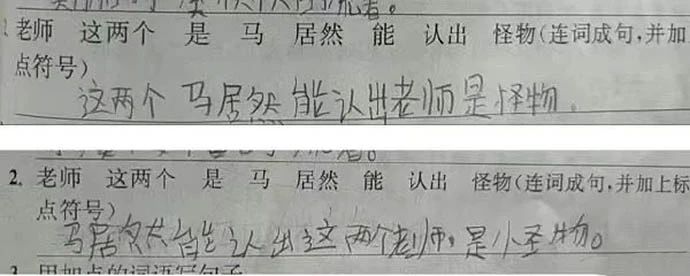 老师 这两个 是 马 居然 能 认出 怪物(连词成句,并加
点符号)
这两个马居然能认出老师是怪物。
2. 老师 这两个 是 马 居然 能 认出 怪物(连词成句,并加上标
点符号)
马居然能认出这两个老师,是怪物。
3. 用加点的词语写句子